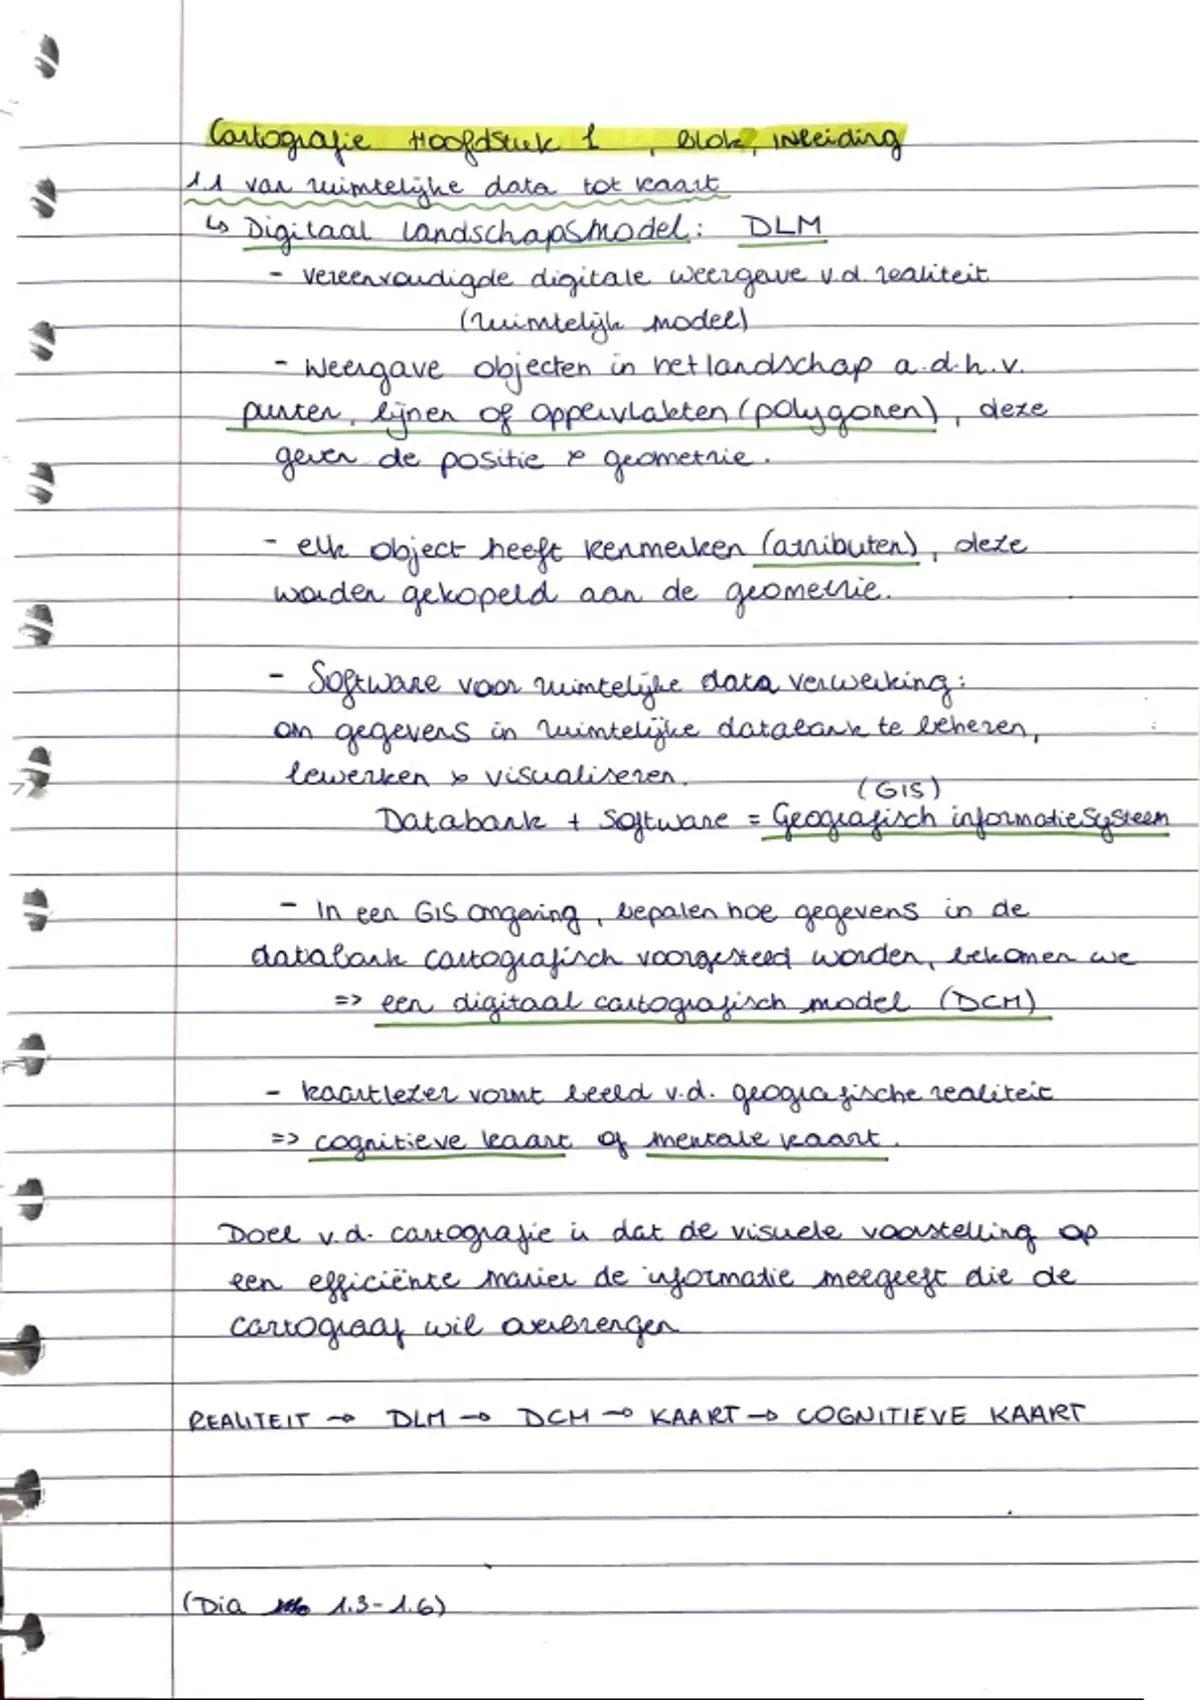 Cartografie Hoofdstuk 1, Blok, inleiding
1.1 van ruimtelijke data tot kaart
↳ Digitaal landschapsmodel: DLM
- vereenvoudigde digitale weergave v.d. realiteit
(ruimtelijk model)
- Weergave objecten in het landschap a.d.h.v.
punten, lijnen of oppervlakten (polygonen), deze
geven de positie & geometrie.
- elk object heeft kenmerken (atributen), deze
worden gekopeld aan de geometrie.
- Software voor ruimtelijke data verwerking:
om gegevens in ruimtelijke databank te beheren,
bewerken & visualiseren.
(GIS)
Databank + Software = Geografisch informatiesysteem
- In een GIS omgeving, bepalen hoe gegevens in de
databank cartografisch voorgesteld worden, bekomen we
=> een digitaal cartografisch model (DCM)
- kaartlezer vormt beeld v.d. geografische realiteit
=> cognitieve kaart of mentale kaart.
Doel v.d. cartografie is dat de visuele voorstelling op
een efficiënte manier de informatie meegeeft die de
cartograaf wil overbrengen
REALITEIT → DLM → DCM → KAART → COGNITIEVE KAART
(Dia 1.3-1.6)